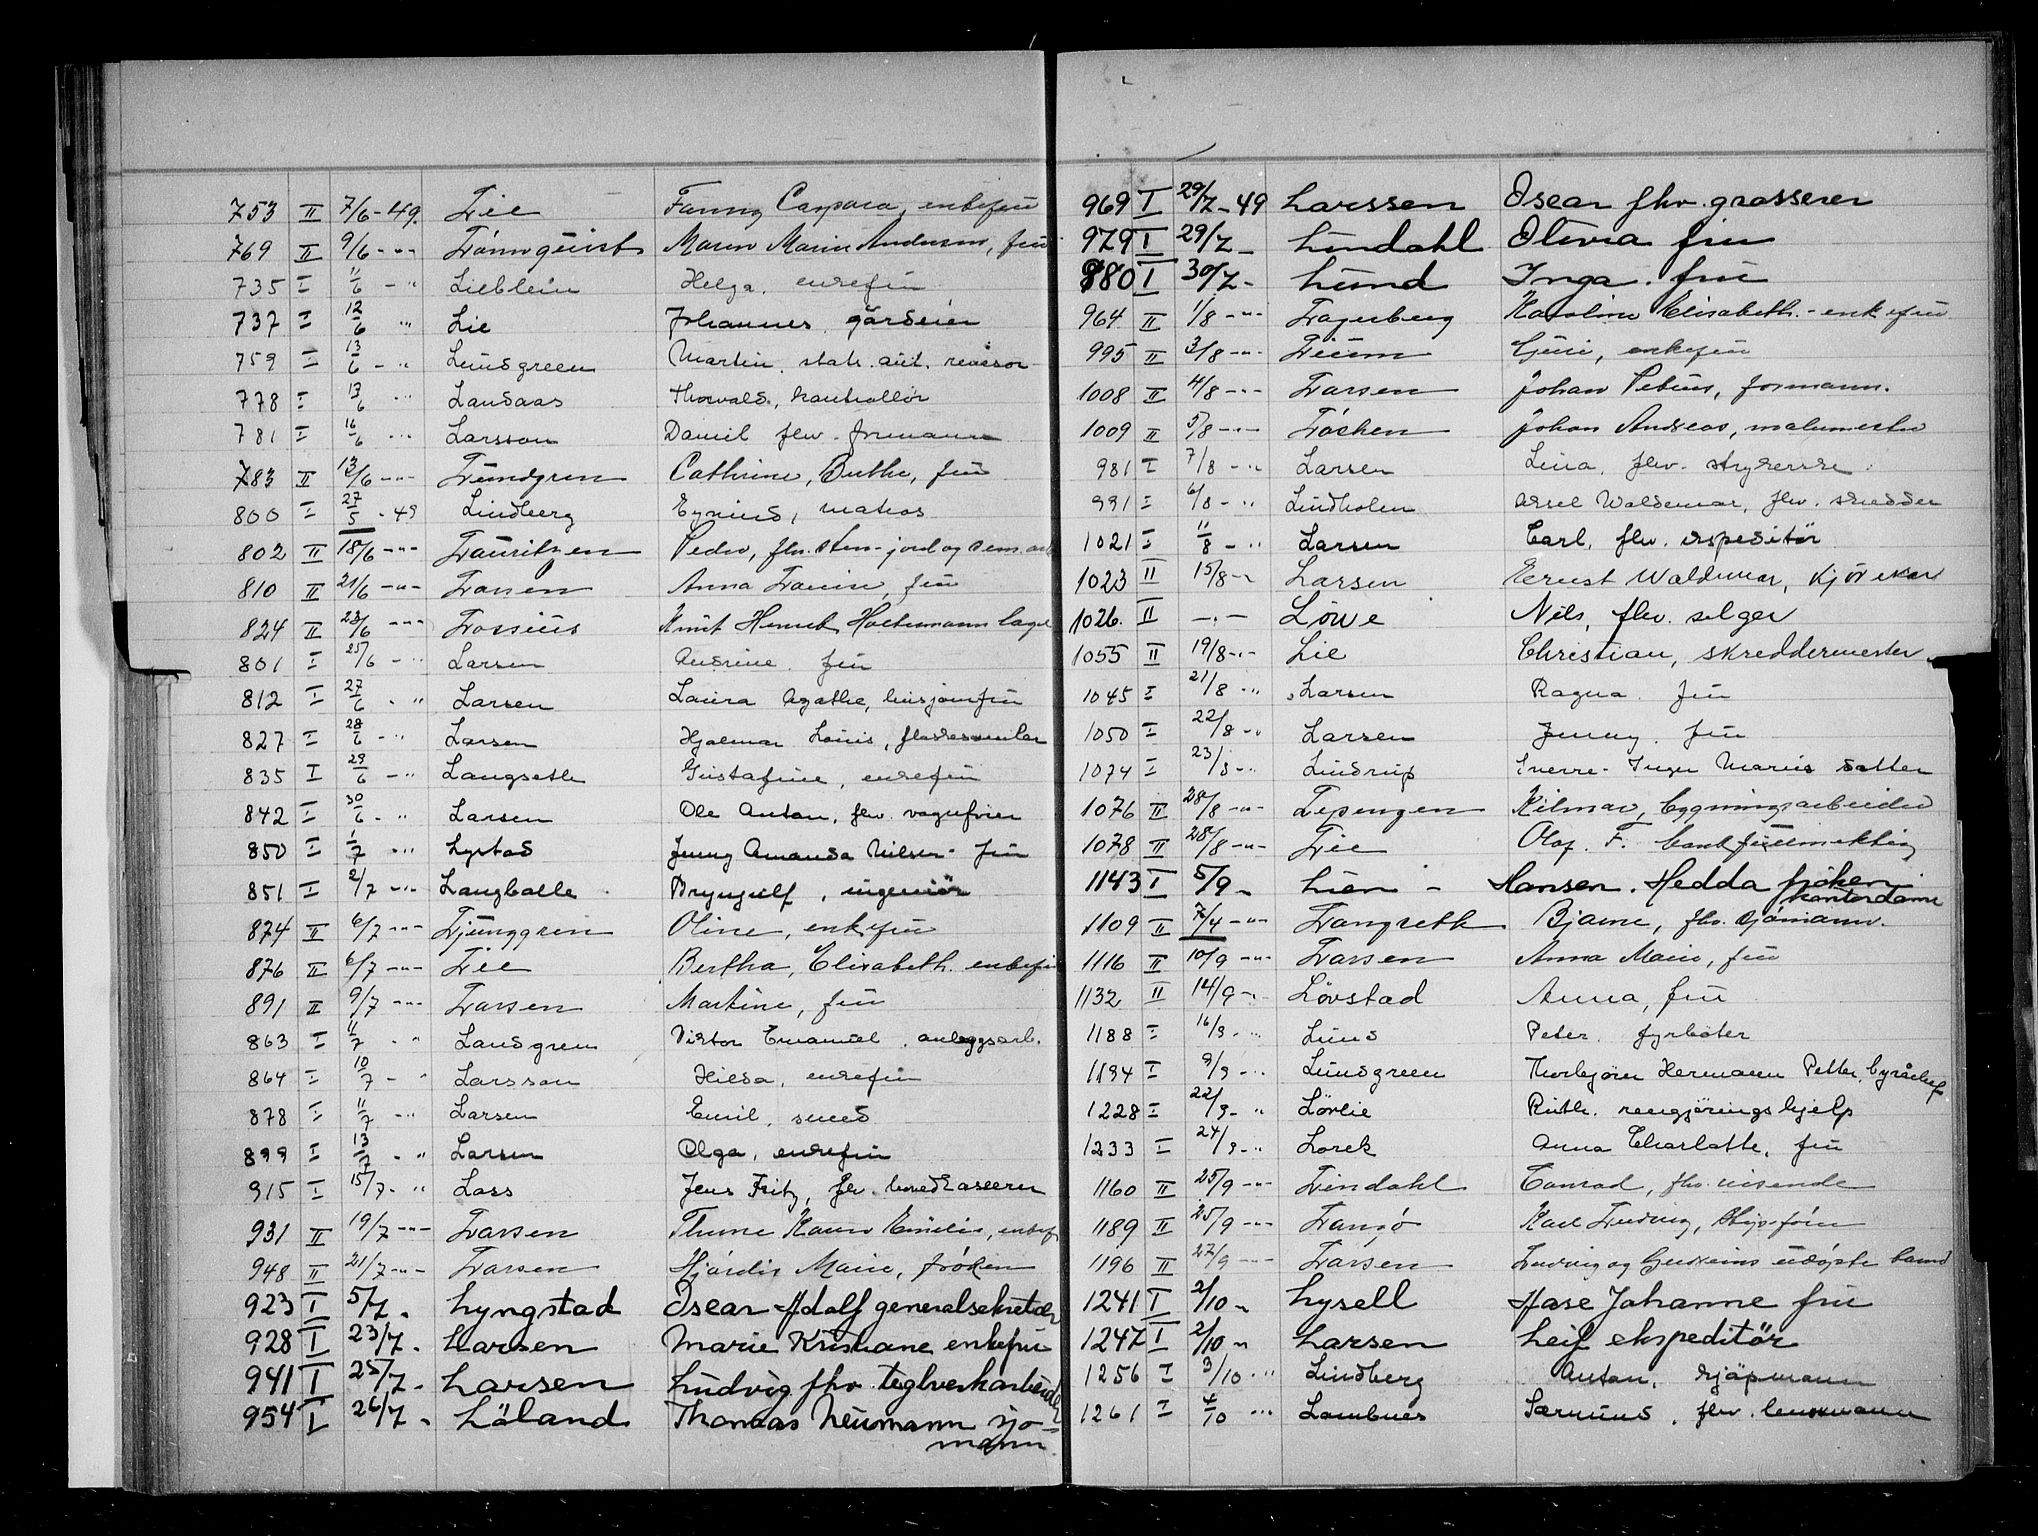 753 II 7/6-49. Lie Fanny Caspara, enkefru
769 II 9/6 -"- Lönnquist Maren Marie Andersen, fru
735 I 11/6 - " Lieblein Helga. enkefru
737 I 12/6 " Lie Johannes gårdeier
759 I 13/6 - " Lundgreen Martin, stats. aut. revisor
778 I 13/6 -"- Landaas Thorvald, kontrollör
781 I 16/6 -"- Larsson Daniel fhv. formann
783 II 13/6 -"- Lundgren Cathrine, Berthe, fru
800 I 27/5 - 49 Lindberg matros
802 II 18/6 -"- Lauritzen Peder, fhv. sten-jord og sem. arb
810 II 21/6 -"- Larsen Anna Lovise, fru
824 II 23/6 -"- Lossius Knut Henrik Holtermann lager
801 I 25/6 - " Larsen Andrine. fru
812 I 27/6 - " Larsen Laura Agathe, husjomfru
827 I 28/6 - " Larsen Hjalmar Louis, flaskesamler
835 I 29/6 - " Langseth Gustafine, enkefru
842 I 30/6 - " Larsen Ole Anton, fhv. vognfører
850 I 1/7 -"- Lystad Jenny Amanda Nilsen - fru
851 I 2/7 -"- Langballe Brynjulf, ingeniör
874 II 6/7 -"- Ljunggren Oline, enkefru
876 II 6/7 -"- Lie Bertha, Elisabeth. enkefru
891 II 9/7 -"- Larsen Martine, fru
863 I 11/7 - " Landgren Viktor Emanuel. anleggsarb.
864 I 10/7 - " Larsson Hilda, enkefru
878 I 11/7 - " Larsen Emil, smed
899 I 13/7 - " Larsen Olga, enkefru
915 I 15/7 - " Lass Jens Fritz, fhv. hovedkasserer
931 II 19/7 -"- Larsen Thume Karen Emilie, enkef
948 II 21/7 -"- Larsen Hjördis Marie, fröken
923 I 5/7 - Lyngstad Oscar Adolf generalsekretær
928 I 23/7 - Larsen Marie Kristiane enkefru
941 I 25/7 - Larsen Ludvig fhv. teglverkarbeider
954 I 26/7 - Låland Thomas Neumann sjö-
mann
969 I 29/7 - 49 Larssen Oscar fhv. grosserer
979 I 29/7 - Lundahl Olivia fru
980 I 30/7 - Lund Inga. fru
964 II 1/8 -"- Lagerberg Karoline Elisabeth. - enkefru
995 II 3/8 -"- Lium Guri, enkefru
1008 II 4/8 -"- Larsen Johan Petrus, formann.
1009 II 5/8 -"- Löcken Johan Andreas, malermester
981 I 7/8 - " Larsen Lina, fhv. strykerske.
991 I 6/8 - " Lindholm Aksel Waldemar, fhv. skredder
1021 I 11/8 - " Larsen Carl, fhv. ekspeditör
1023 II 15/8 -"- Larsen Ernst Waldemar, kjörekar
1026. II -"- Löwe Nils, fhv. selger
1055 II 19/8 -"- Lie Christian, skreddermester
1045 I 21/8 - " Larsen Ragna. fru
1050 I 22/8 - " Larsen Jenny. fru
1074 I 23/8 - " Lindrup Sverre-Inger Marius datter
1076 II 28/8 -"- Lepengen Hilmar, bygningsarbeider
1078 II 28/8 -"- Lie Olaf. F. bankfullmektig
1143 I 5/9 - Lien - Hansen. Hedda fröken
kontordame
1109 II 7/4 -"- Langreth Bjarne, fhv. sjömann.
1116 II 10/9 -"- Larsen Anna Marie, fru
1132 II 14/9 -"- Lövstad Anna, fru
1188 I 16/9 - " Lund Peter. fyrböter
1194 I 9/9 - " Lundgreen Thorbjörn Hermann Petter, byråchef
1228 I 22/9 - " Lörlie Ruth. rengjöringshjelp
1233 I 24/9 - " Lorck Anna Charlotte, fru
1160 II 25/9 -"- Lindahl Conrad, fhv. reisende
1189 II 25/9 -"- Langö Karl Ludvig, skipsförer
1196 II 27/9 -"- Larsen Ludvig og Gudruns udöpte barn
1241 I 2/10 - Lysell Aase Johanne fru
1247 I 2/10 " Larsen Leif ekspeditör
1256 I 3/10 -"- Lindberg Anton, kjöpmann
1261 I 4/10 -"- Lambnes Sæmund, fhv. lensmann